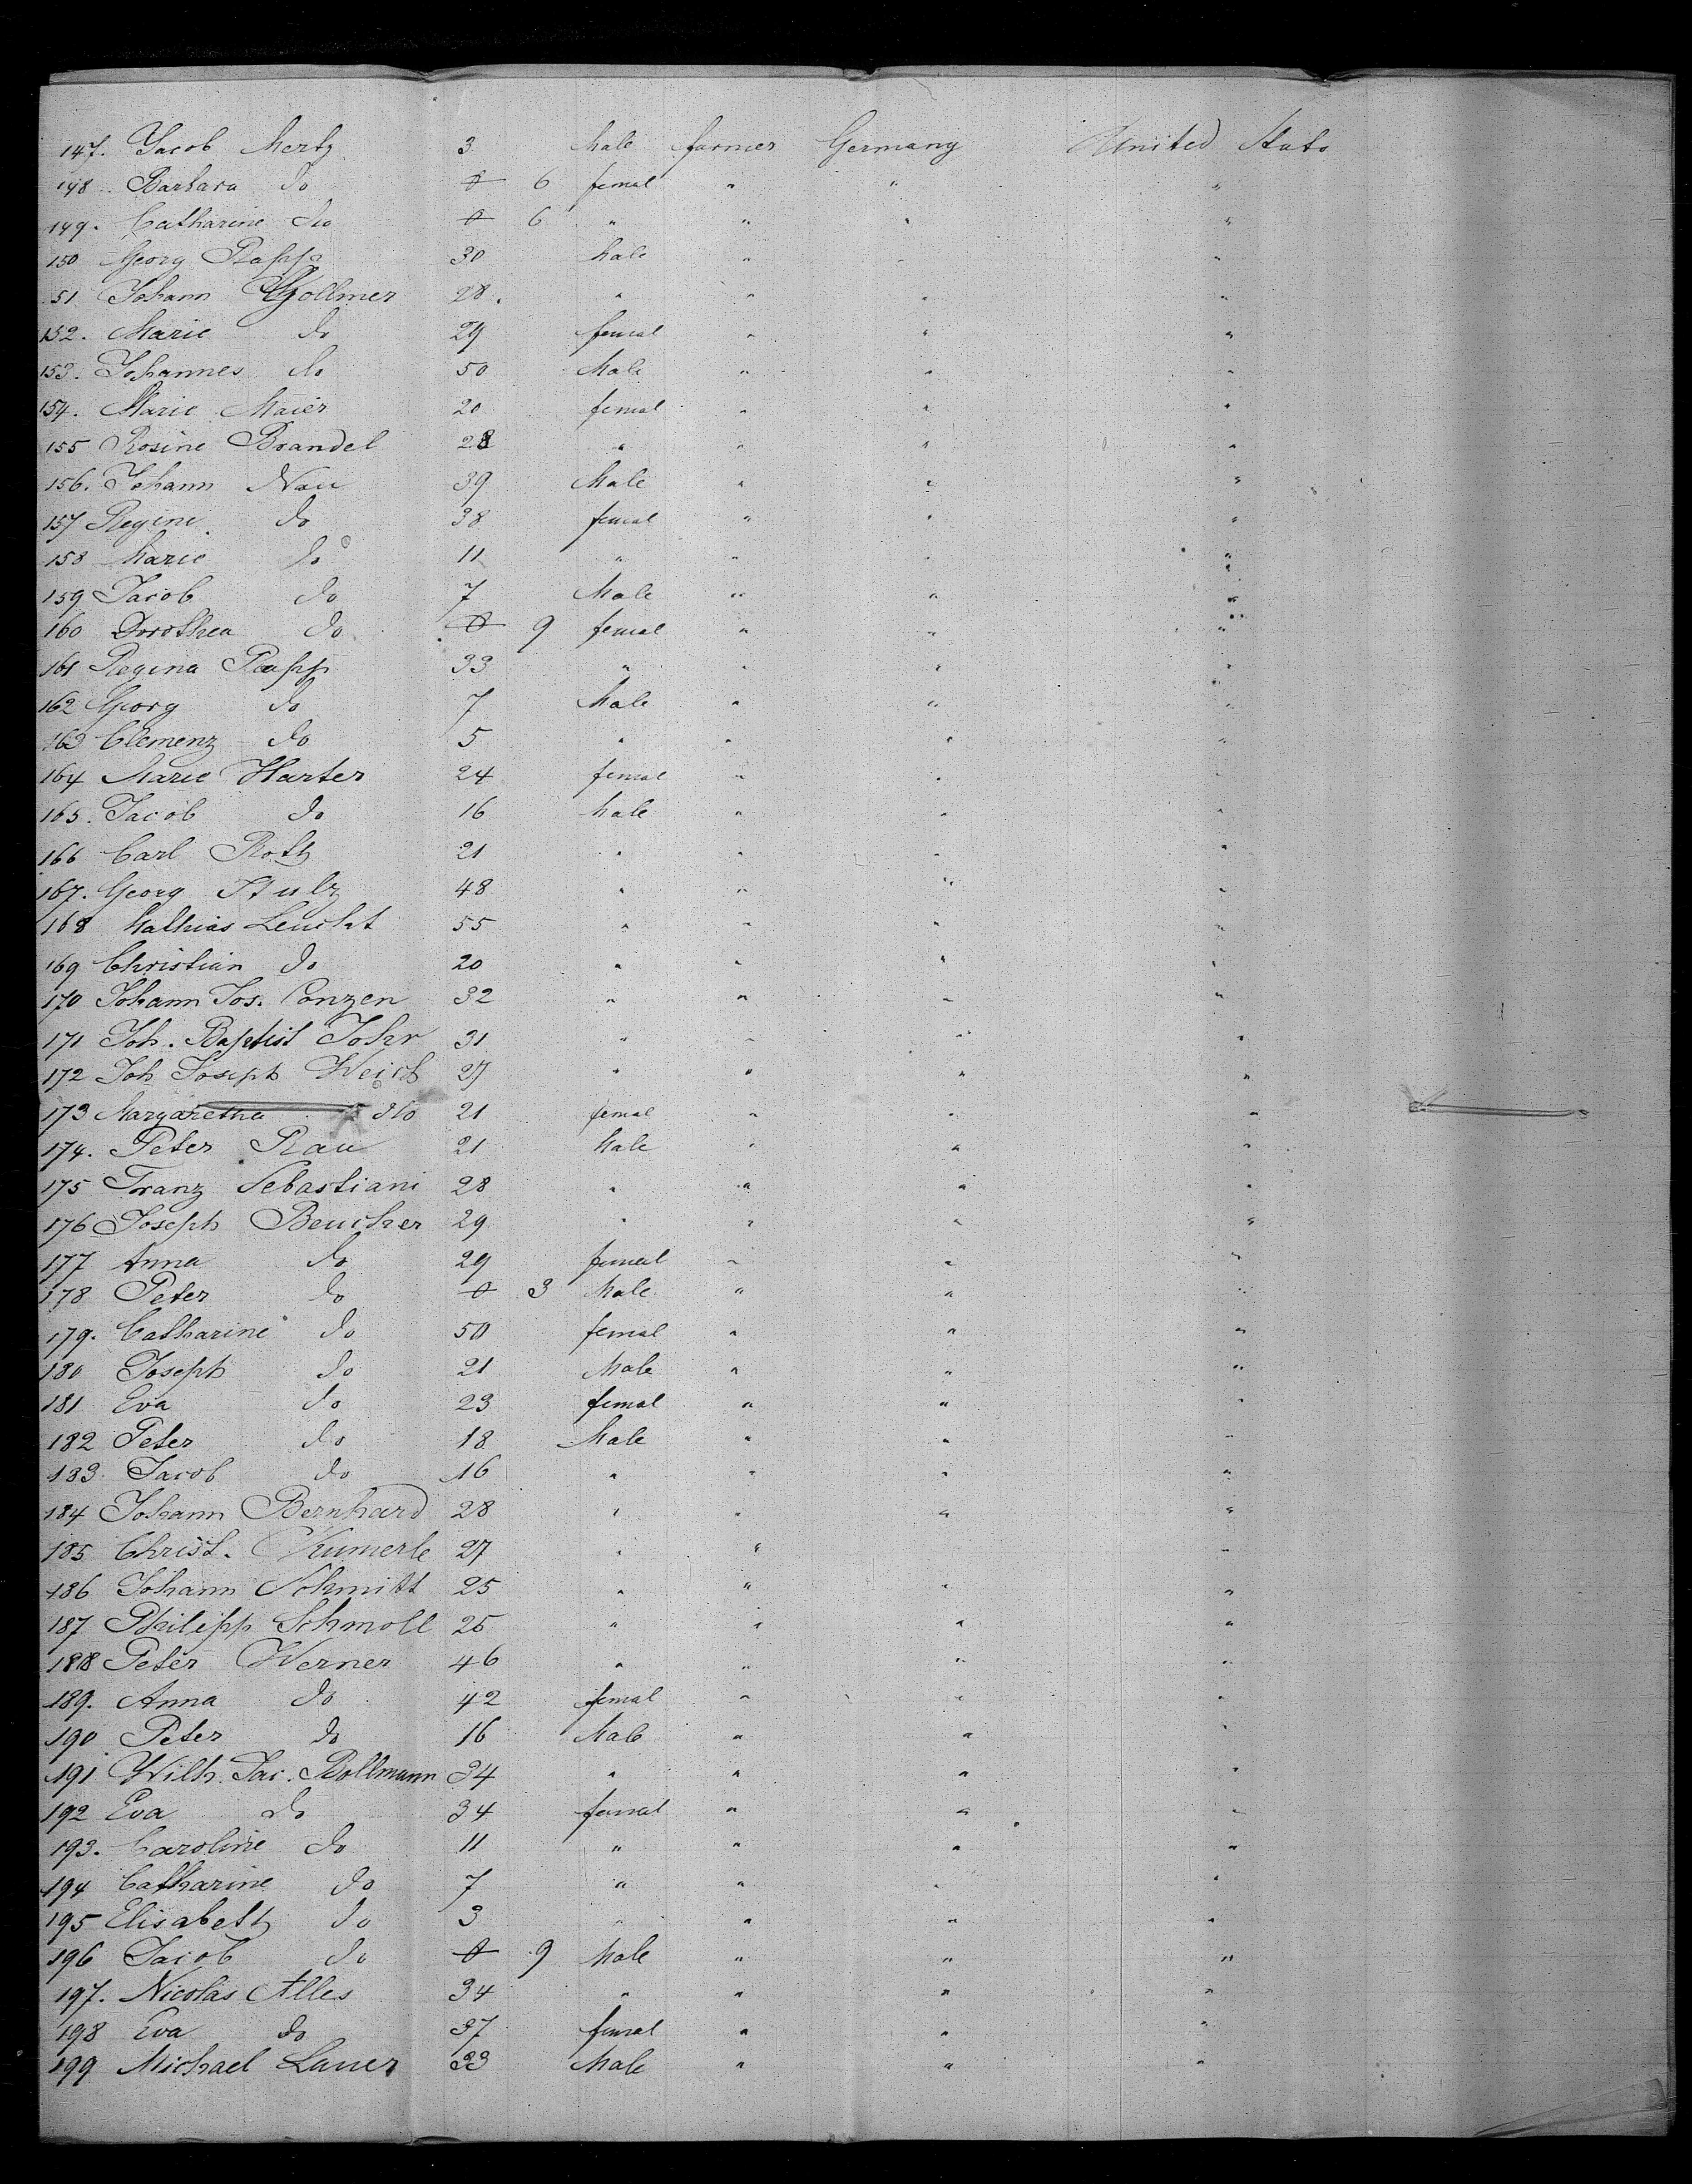 147. Jacob Mertz 3 Male farmer Germany United Stats
148. Barbara do 0 6 femal " " "
149. Catharine do 0 6 " " " "
150 Georg Rapp 30 Male " " "
151 Johann Gollmer 28. " " " "
152. Marie do 29 femal " " "
153. Johannes do 50 Male " " "
154. Marie Maier 20 femal " " "
155 Rosine Brandel 28 " " " "
156. Johann Nau 39 Male " " "
157 Regine do 38 femal " " "
158 Marie do 11 " " " "
159 Jacob do 7 Male " " "
160 Dorothea do 0 9 femal " " "
161 Regina Rapp 33 " " " "
162 Georg do 7 Male " " "
163 Clemenz do 5 " " " "
164 Marie Harter 24 femal " " "
165. Jacob do 16 Male " " "
166 Carl Roth 21 " " " "
167. Georg Stulz 48 " " " "
168 Mathias Leucht 55 " " " "
169 Christian do 20 " " " "
170 Johann Jos. Conzen 32 " " " "
171 Joh. Baptist Johr 31 " " " "
172 Joh Joseph Weich 27 " " " "
173 Margaretha do 21 femal " " "
174. Peter Rau 21 Male " " "
175 Franz Sebastiani 28 " " " "
176 Joseph Beucher 29 " " " "
177 Anna do 29 femal " " "
178 Peter do 0 3 Male " " "
179. Catharine do 50 femal " " "
180 Joseph do 21 Male " " "
181 Eva do 23 femal " " "
182 Peter do 18 Male " " "
183. Jacob do 16 " " " "
184 Johann Bernhard 28 " " " "
185 Christ. Kumerle 27 " " "
186 Johann Schmitt 25 " " " "
187 Philipp Schmoll 25 " " " "
188 Peter Werner 46 " " " "
189. Anna do 42 femal " " "
190 Peter do 16 Male " " "
191 Wilh. Jac. Bollmann 34 " " " "
192 Eva do 34 femal " " "
193. Caroline do 11 " " " "
194 Catharine do 7 " " " "
195 Elisabeth do 3 " " " "
196 Jacob do 0 9 Male " " "
197. Nicolas Alles 34 " " " "
198 Eva do 37 femal " " "
199 Michael Lauer 33 Male " " "